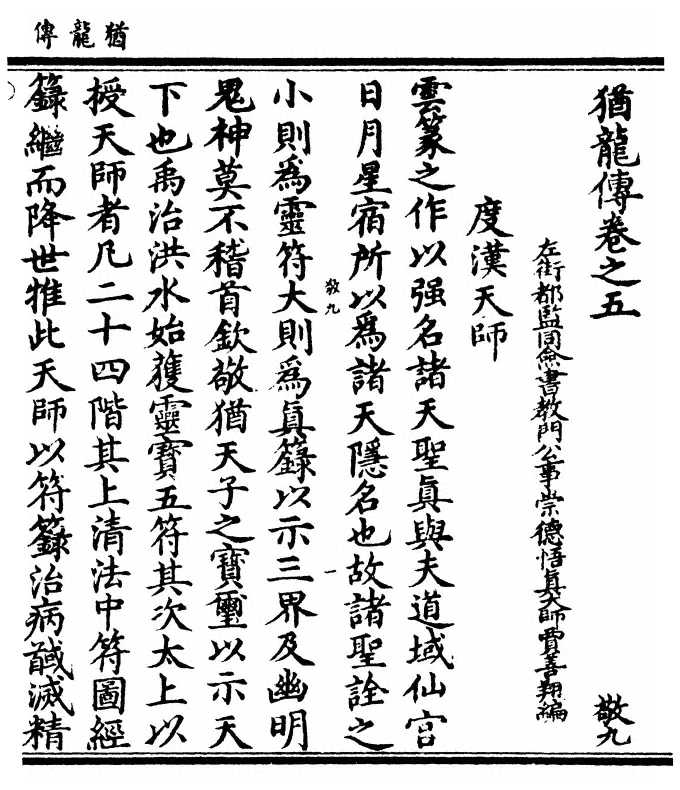 猶龍傳
猶龍傳卷之五 敬九
左街都監同僉書教門公事崇德悟真大師賈善翔編
度漢天師
雲篆之作以强名諸天聖真與夫道域仙宮
日月星宿所以為諸天隱名也故諸聖詮之
敬九 一
小則為靈符大則為真籙以示三界及幽明
鬼神莫不稽首欽敬猶天子之寶璽以示天
下也禹治洪水始獲靈寶五符其次太上以
授天師者凡二十四階其上清法中符圖經
籙繼而降世惟此天師以符籙治病馘滅精